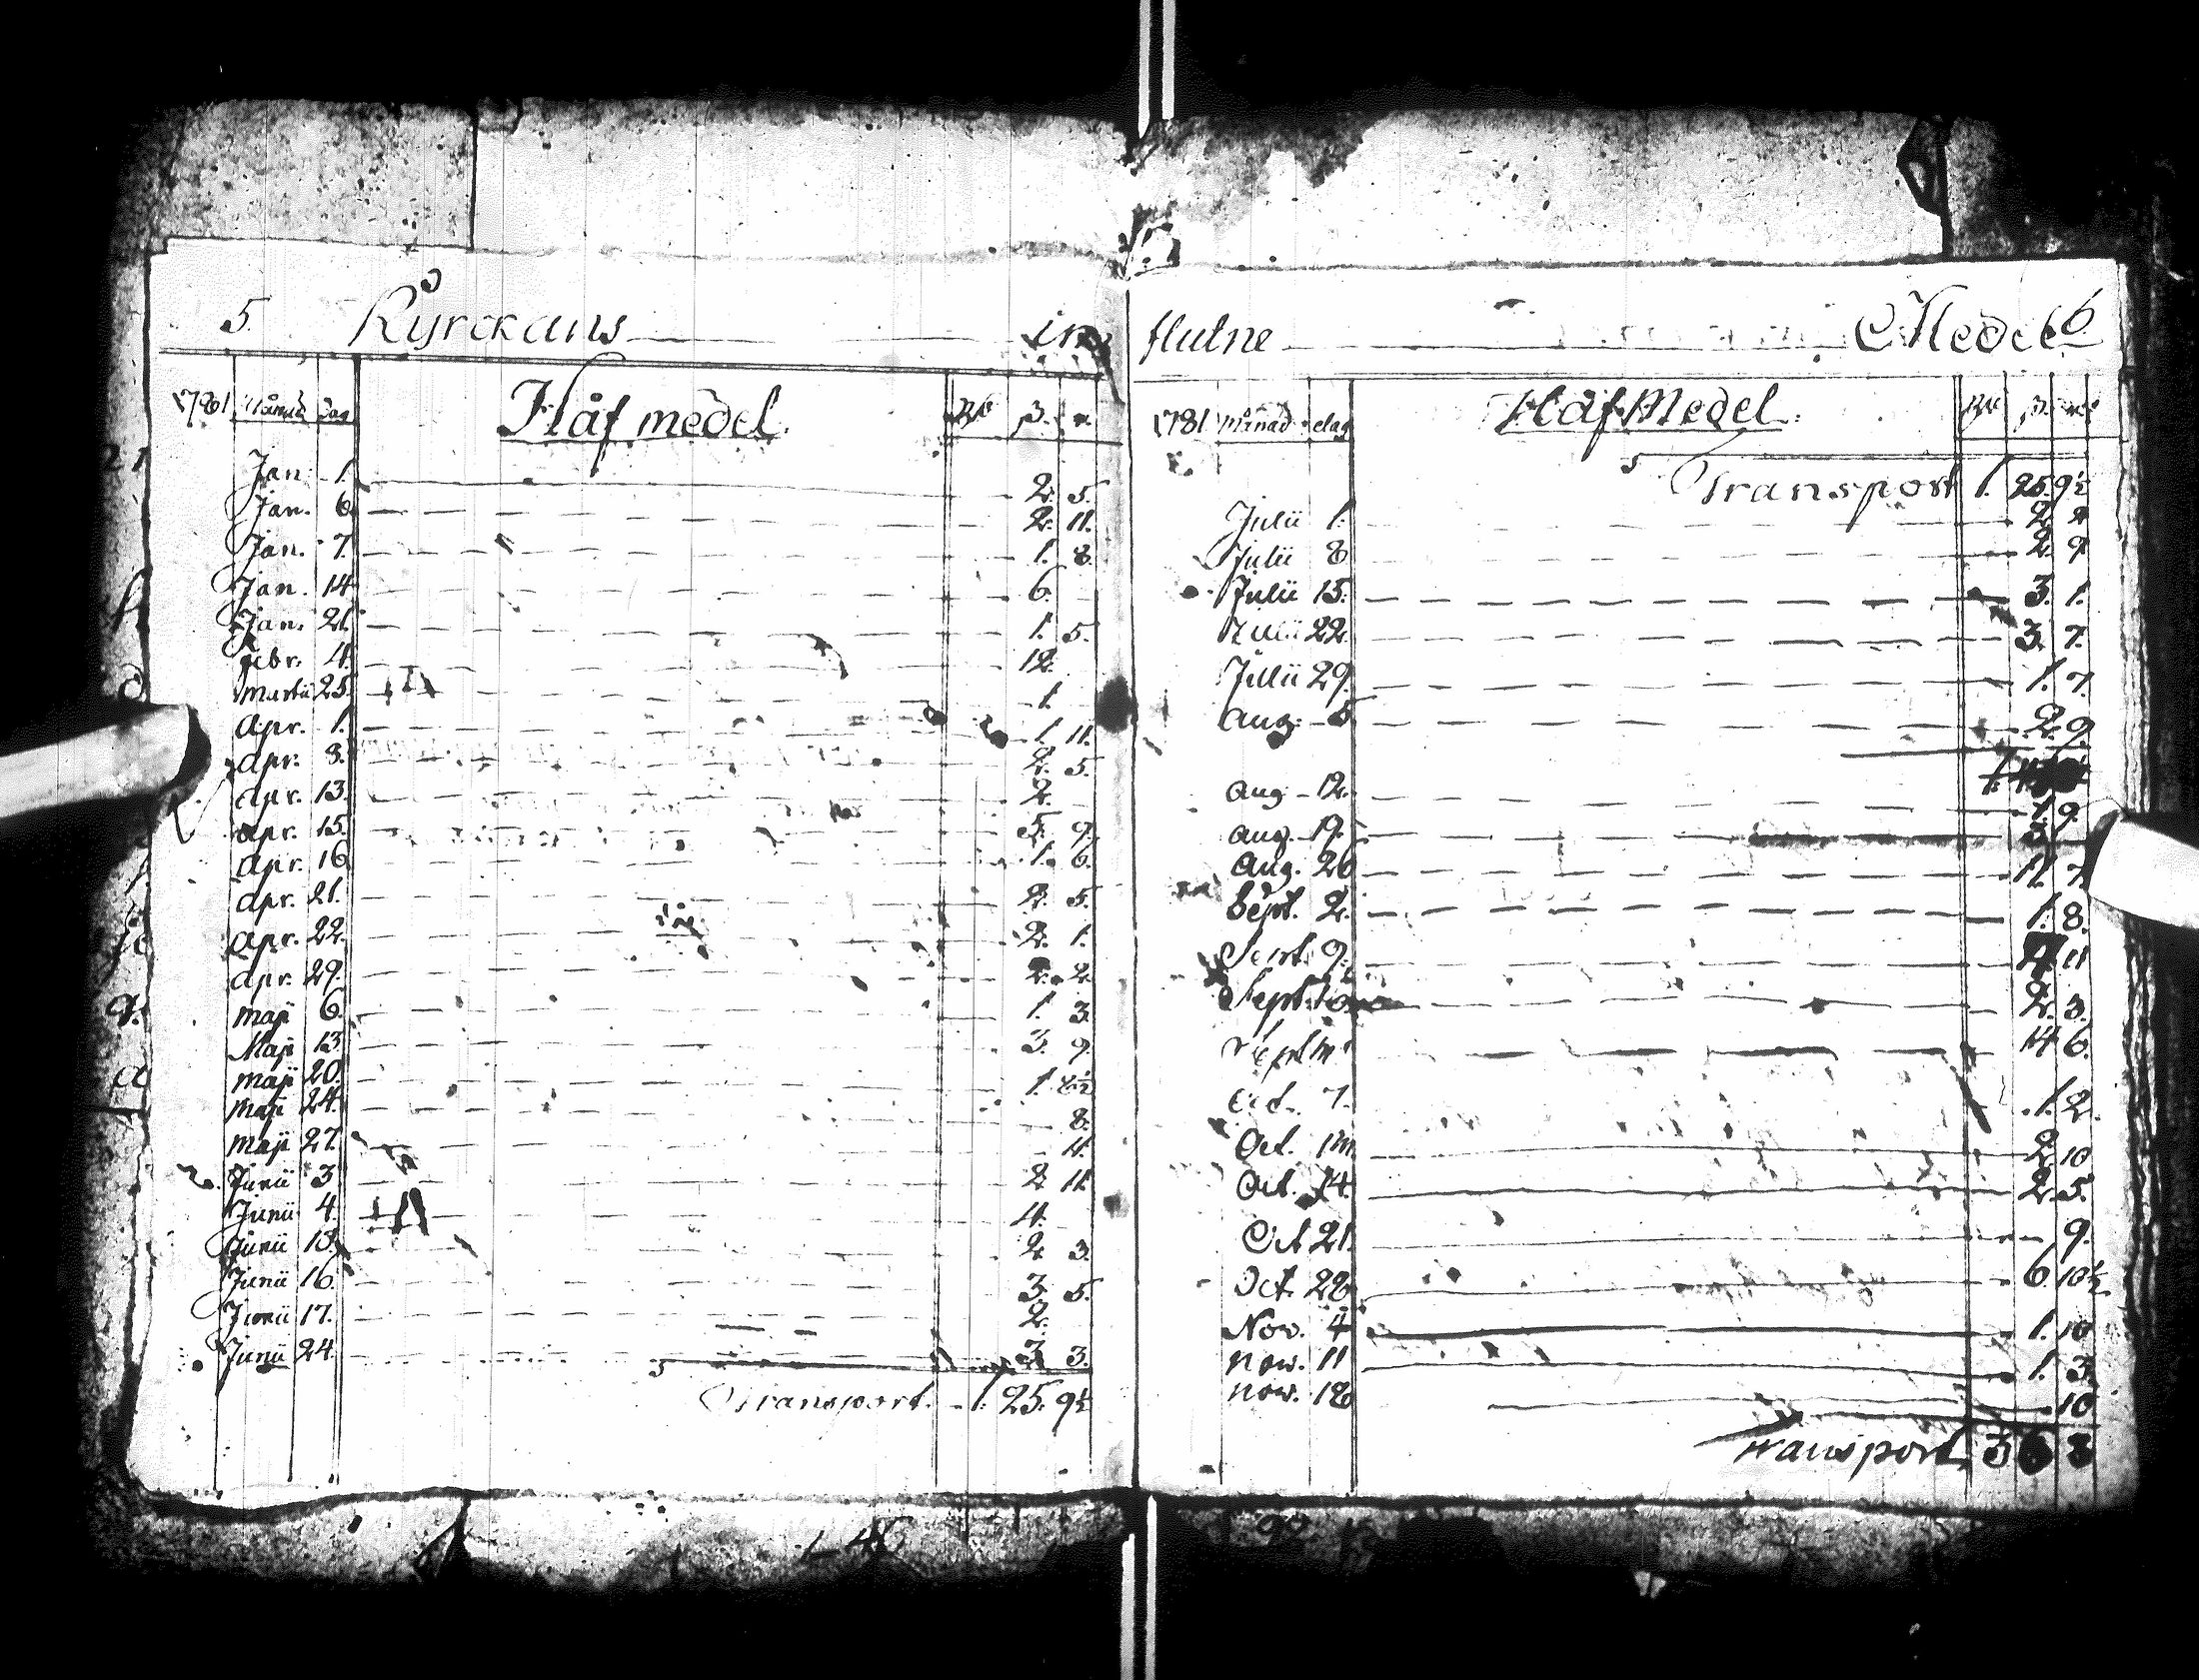 5. Kyrckans in
1781 Månad dag Håf medel. Rd ß. r.
Jan. 1. 2. 5.
Jan. 6. 2. 11.
Jan. 7. 1. 8.
Jan. 14 6.
Jan. 21. 1. 5.
Febr. 4. 12.
Martii 25. 1.
Apr. 1. 1. 11.
Apr. 8. 2. 5.
Apr. 13. 2.
Apr. 15. 5. 9.
Apr. 16 1. 6.
Apr. 21. 2. 5.
Apr. 22. 2. 1.
Apr. 29. 2. 2.
maji 6. 1. 3.
Maji 13. 3. 9.
maji 20. 1.
maji 24. 8.
maji 27. 11.
Junii 3. 2 11.
Junii 4. 4.
Junii 10. 2 3.
Junii 16. 3. 5.
Junii 17. 2.
Junii 24. 3 3.
Transport. 1. 25. 9½
flutne Medel 6
1781 Månad dag Håf Medel.
Transport 1. 25. 9½
Julii 1. 2
Julii 8 2. 9
Julii 15. 3. 1.
Julii 22. 3. 7.
Julii 29. 1. 7
Aug. 5 2. 9
Aug. 12. 1. 9.
Aug. 19. 3.
Aug. 26 11. 7.
Sept. 2. 1. 8.
Sept. 9. 11
Sept. 2. 3.
14 6.
Oct. 7. 1. 2.
Oct. 2. 10
Oct. 14. 2. 5.
Oct 21. 9.
Oct. 28 6. 10½
Nov. 4 1. 10
Nov. 11 1. 3.
Nov. 18 10
Transport 3